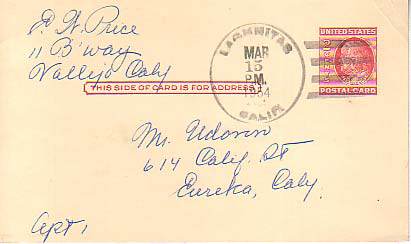 P. W. Price
11 B'way
Vallejo Caly
THIS SIDE OF CARD IS FOR ADDRESS
LAGUNITAS
MAR
15
P.M.
1954
CALIF.
UNITED STATES
POSTAL CARD
Mr. Udovin
614 Caly. St
Eureka, Caly.
Apt,